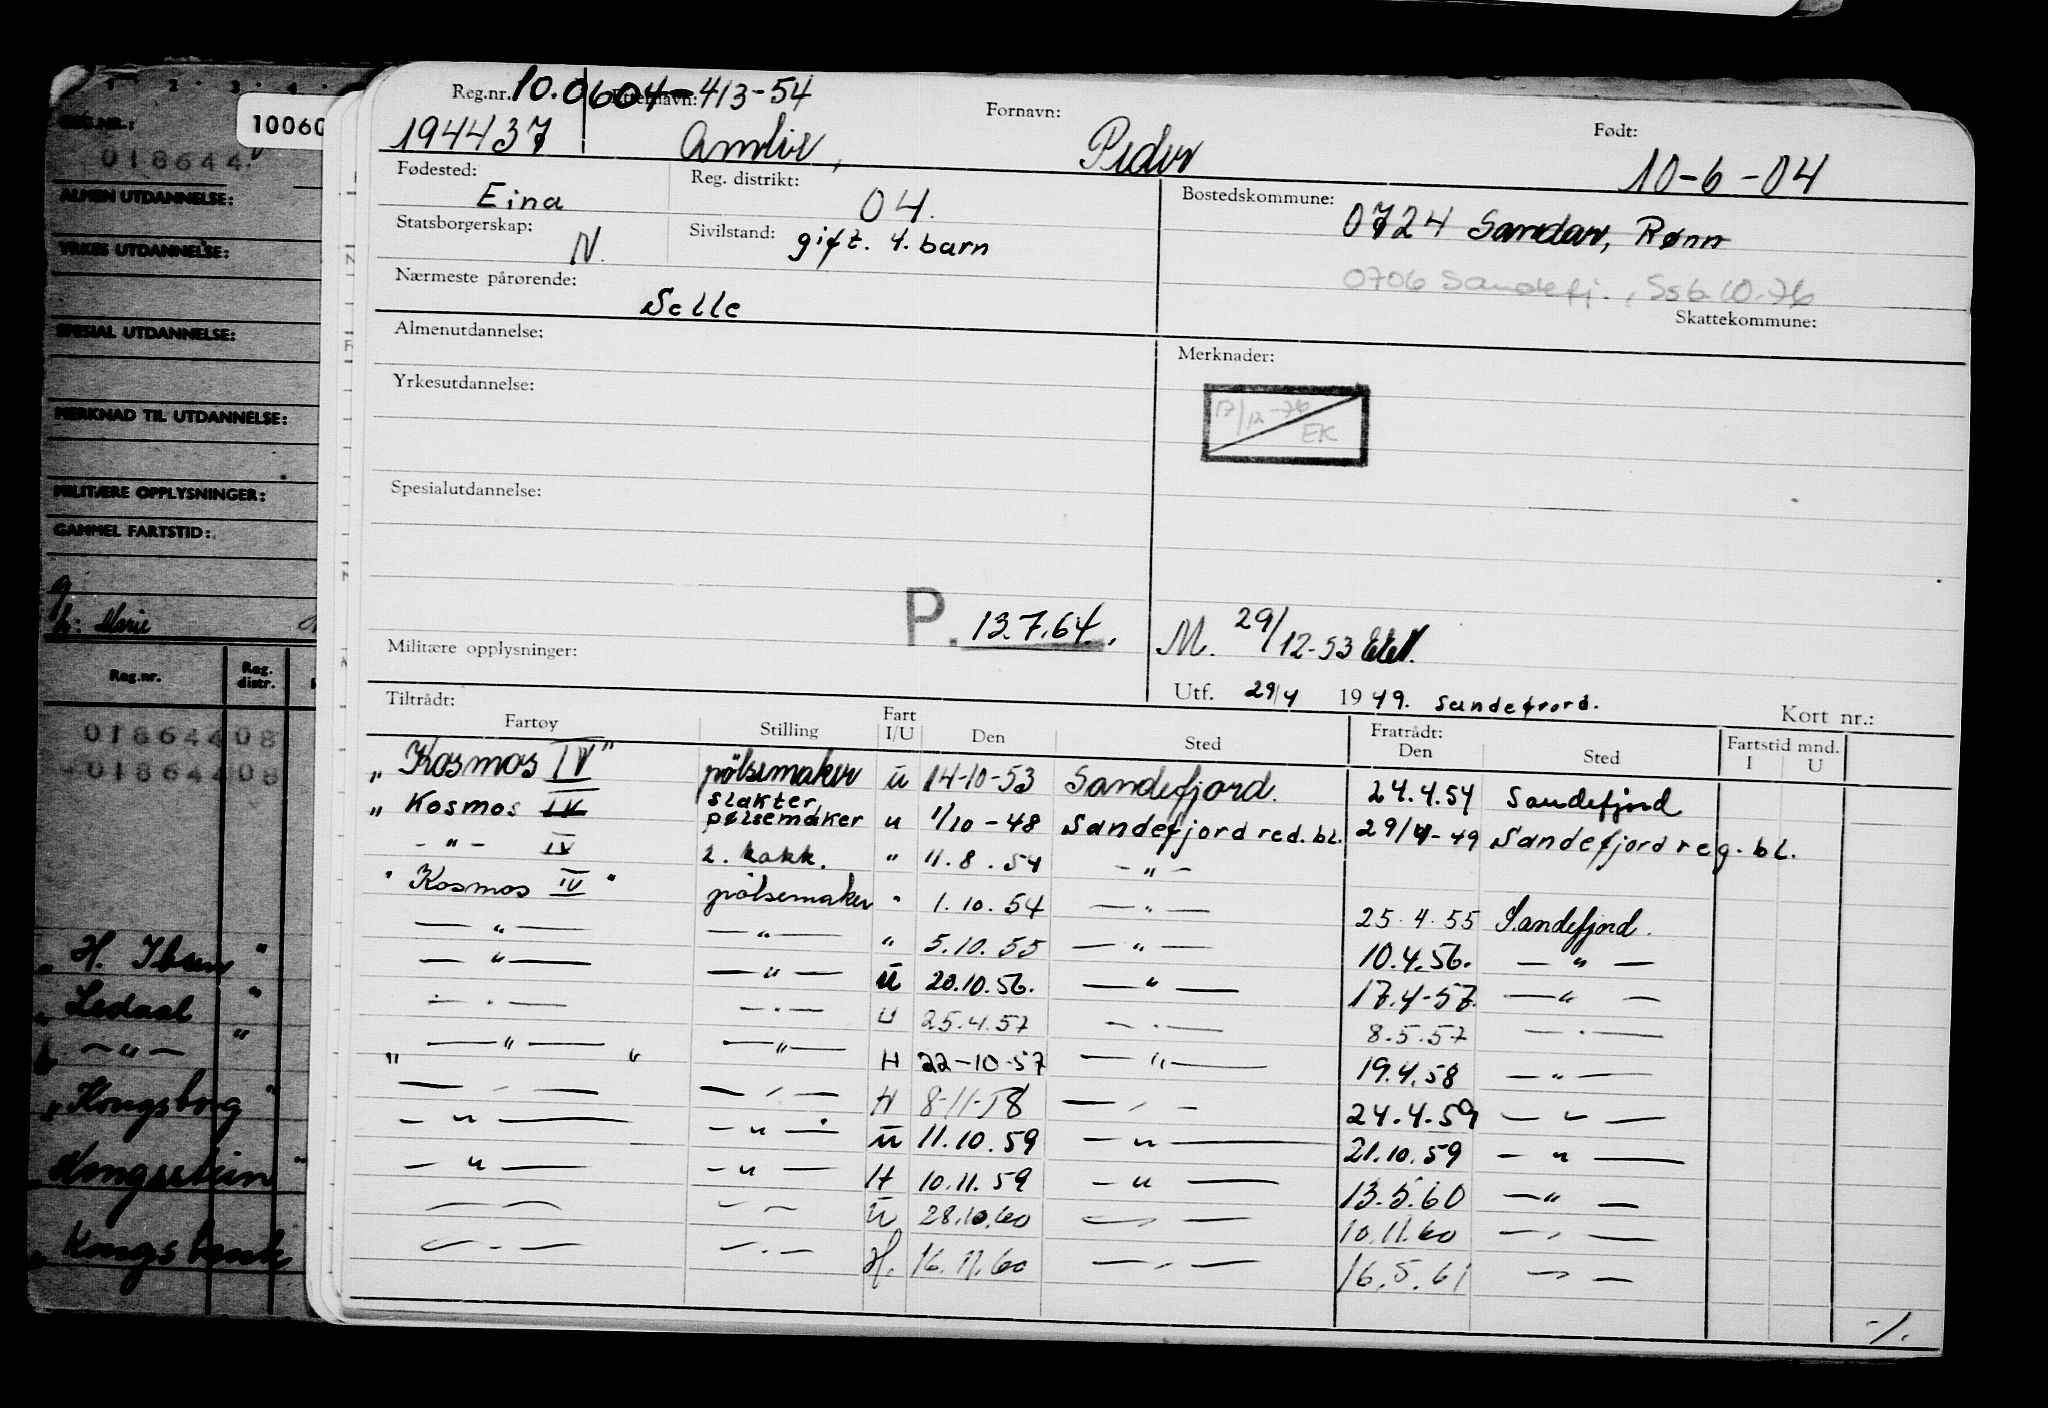 Reg.nr. 10.0604-413-54 Etternavn: Fornavn: Født:
194437 Amlie, Peder 10-6-04
Fødested: Eina Reg. distrikt: 04. Bostedskommune: 0724 Sandar, Rønn
Statsborgerskap: N. Sivilstand: gift. 4. barn
0706 Sandefj., Ssb. 10.76
Nærmeste pårørende: Selle
Skattekommune:
Almenutdannelse: Merknader:
Yrkesutdannelse:
17/12-76 EK
Spesialutdannelse:
P. 13.7.64.
M. 29/12-53
Militære opplysninger:
Utf. 29/4 1949. Sandefjord.
Tiltrådt: Kort nr.:
Fartøy Stilling Fart I/U Den Sted Fratrådt: Den Sted Fartstid mnd. I U
„Kosmos IV" pølsemaker u 14-10-53 Sandefjord. 24.4.54 Sandefjord
„Kosmos IV slakter, pølsemaker u 1/10-48 Sandefjord red. bl. 29/4-49 Sandefjord reg. bl.
- " - IV 2. kokk. " 11.8.54 - " -
"Kosmos IV" pølsemaker " 1.10.54 - " - 25.4.55 Sandefjord.
- " - - " - " 5.10.55 - " - 10.4.56. - " -
- " - - " - u 20.10.56. - " - 17.4-57. - " -
- " - - " - u 25.4.57 - " - 8.5.57 - " -
„ - " - " - " - H 22-10-57 - " - 19.4.58 - " -
- " - - " - H 8-11-58 - " - 24.4.59 - " -
- " - - " - u 11.10.59 - " - 21.10.59 - " -
- " - - " - H 10.11.59 - " - 13.5.60 - " -
- " - - " - u 28.10.60 - " - 10.11.60 - " -
- " - - " - H. 16.11.60 - " - 16.5.61 - " -
-/.
10060
REG.NR.:
018644
ALMEN UTDANNELSE:
YRKES UTDANNELSE:
SPESIAL UTDANNELSE:
MERKNAD TIL UTDANNELSE:
MILITÆRE OPPLYSNINGER:
GAMMEL FARTSTID:
g
h: Marie
Reg.nr. Reg. distr.
01864408
01864408
„ H. Ibsen "
„ Ledaal "
- " - "
„ Kongsborg "
„ Kongsstein "
„ Kongsbank